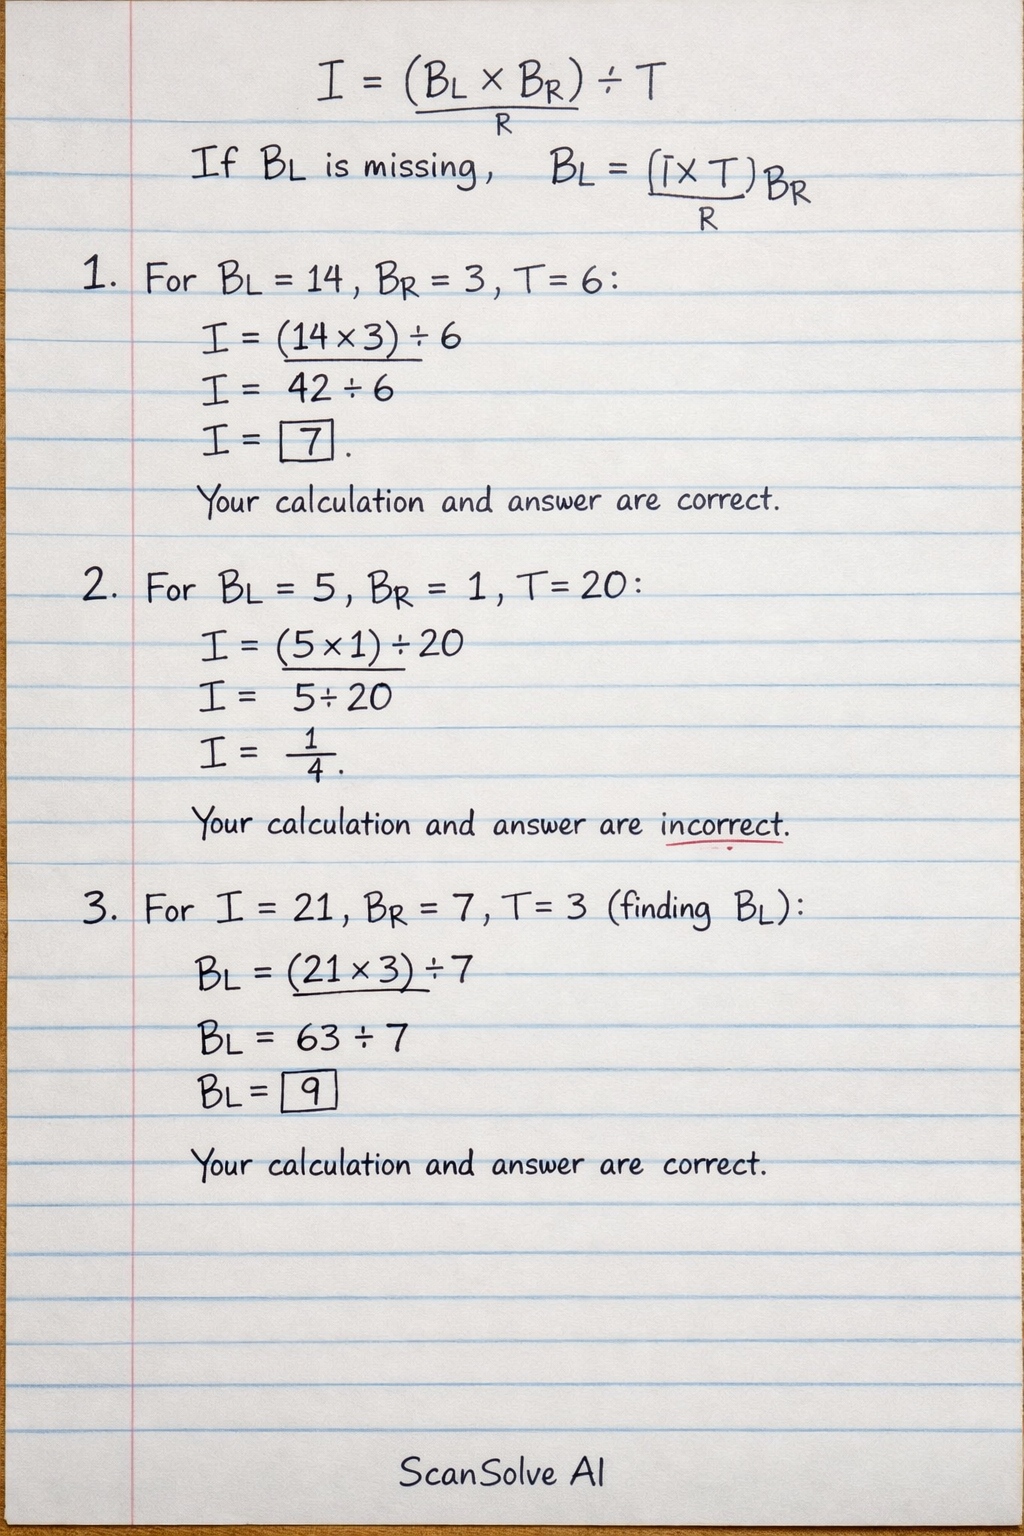 I = (BL × BR) ÷ T
R
If BL is missing, BL = (I × T) BR
R
1. For BL = 14, BR = 3, T = 6:
I = (14 × 3) ÷ 6
I = 42 ÷ 6
I = 7.
Your calculation and answer are correct.
2. For BL = 5, BR = 1, T = 20:
I = (5 × 1) ÷ 20
I = 5 ÷ 20
I = 1/4.
Your calculation and answer are incorrect.
3. For I = 21, BR = 7, T = 3 (finding BL):
BL = (21 × 3) ÷ 7
BL = 63 ÷ 7
BL = 9
Your calculation and answer are correct.
ScanSolve AI